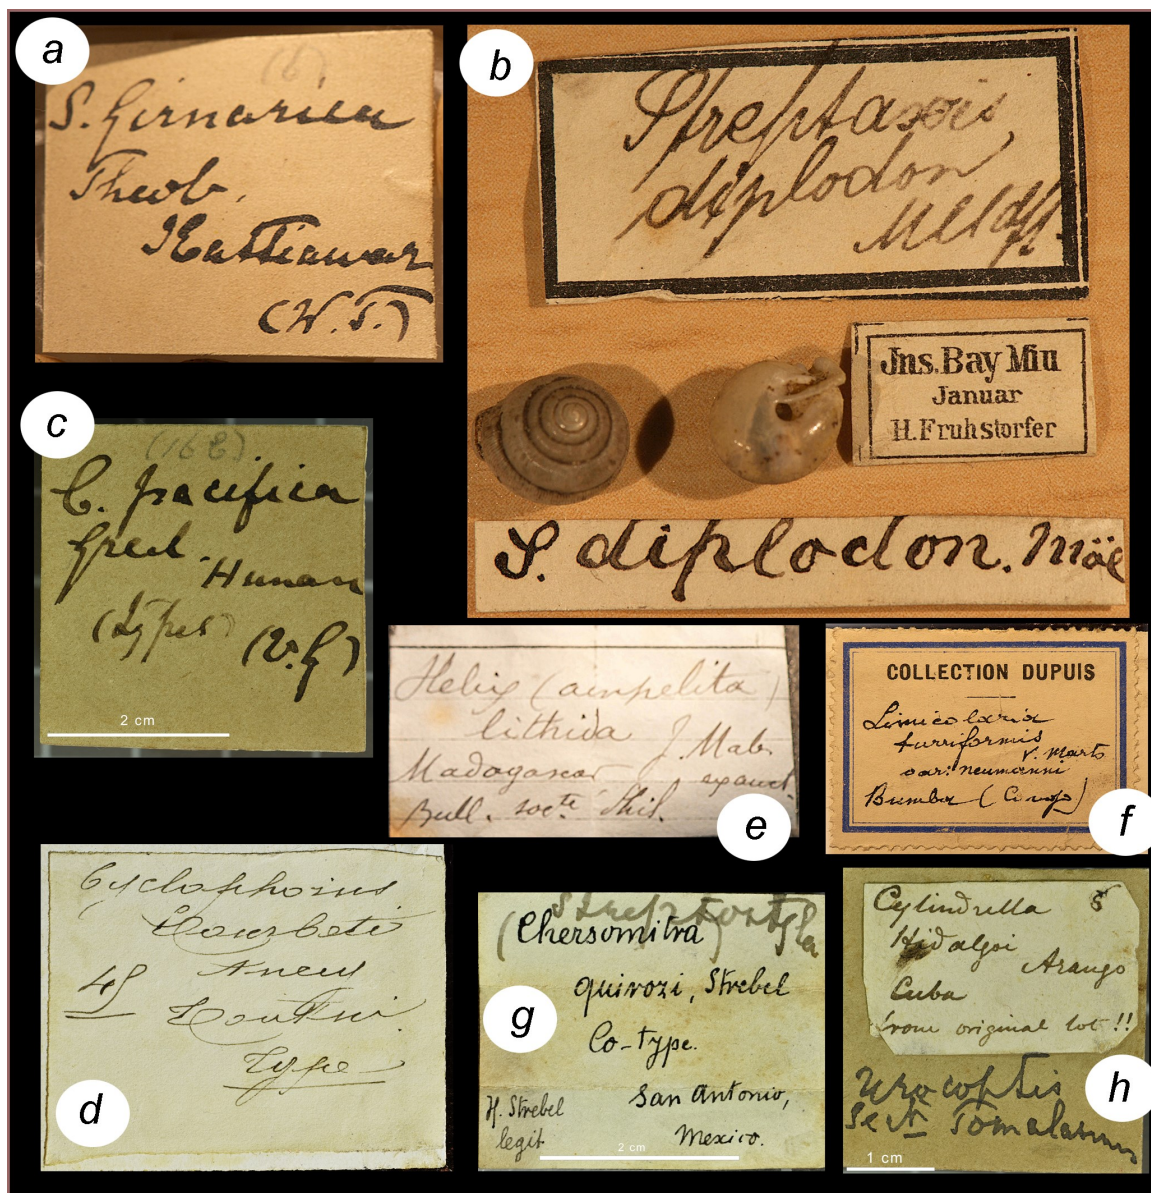 a
(6)
S. Girnarica
Theob.
Kattiawar
(W.T.)
b
Streptaxis
diplodon
Mlldff.
Jns. Bay Miu
Januar
H. Fruhstorfer
S. diplodon. Möl
c
(168)
C. pacifica
Gred.
Hunan
(types)
(v. G)
2 cm
e
Helix (ampelita)
lithida J. Mab.
Madagascar
Bull. soc.te Phil.
f
COLLECTION DUPUIS
Limicolaria
turriformis
v. Marts
var: neumanni
Bumba (Congo)
d
Cyclophorus
Courbeti
Ancey
45
Tonkin.
Type
g
Streptostyla
(Chersomitra)
quirozi, Strebel
Co-type.
San Antonio,
Mexico.
H. Strebel
legit
2 cm
h
Cylindrella 5
Hidalgoi
Arango
Cuba
from original lot!!
Urocoptis
Sect.
1 cm